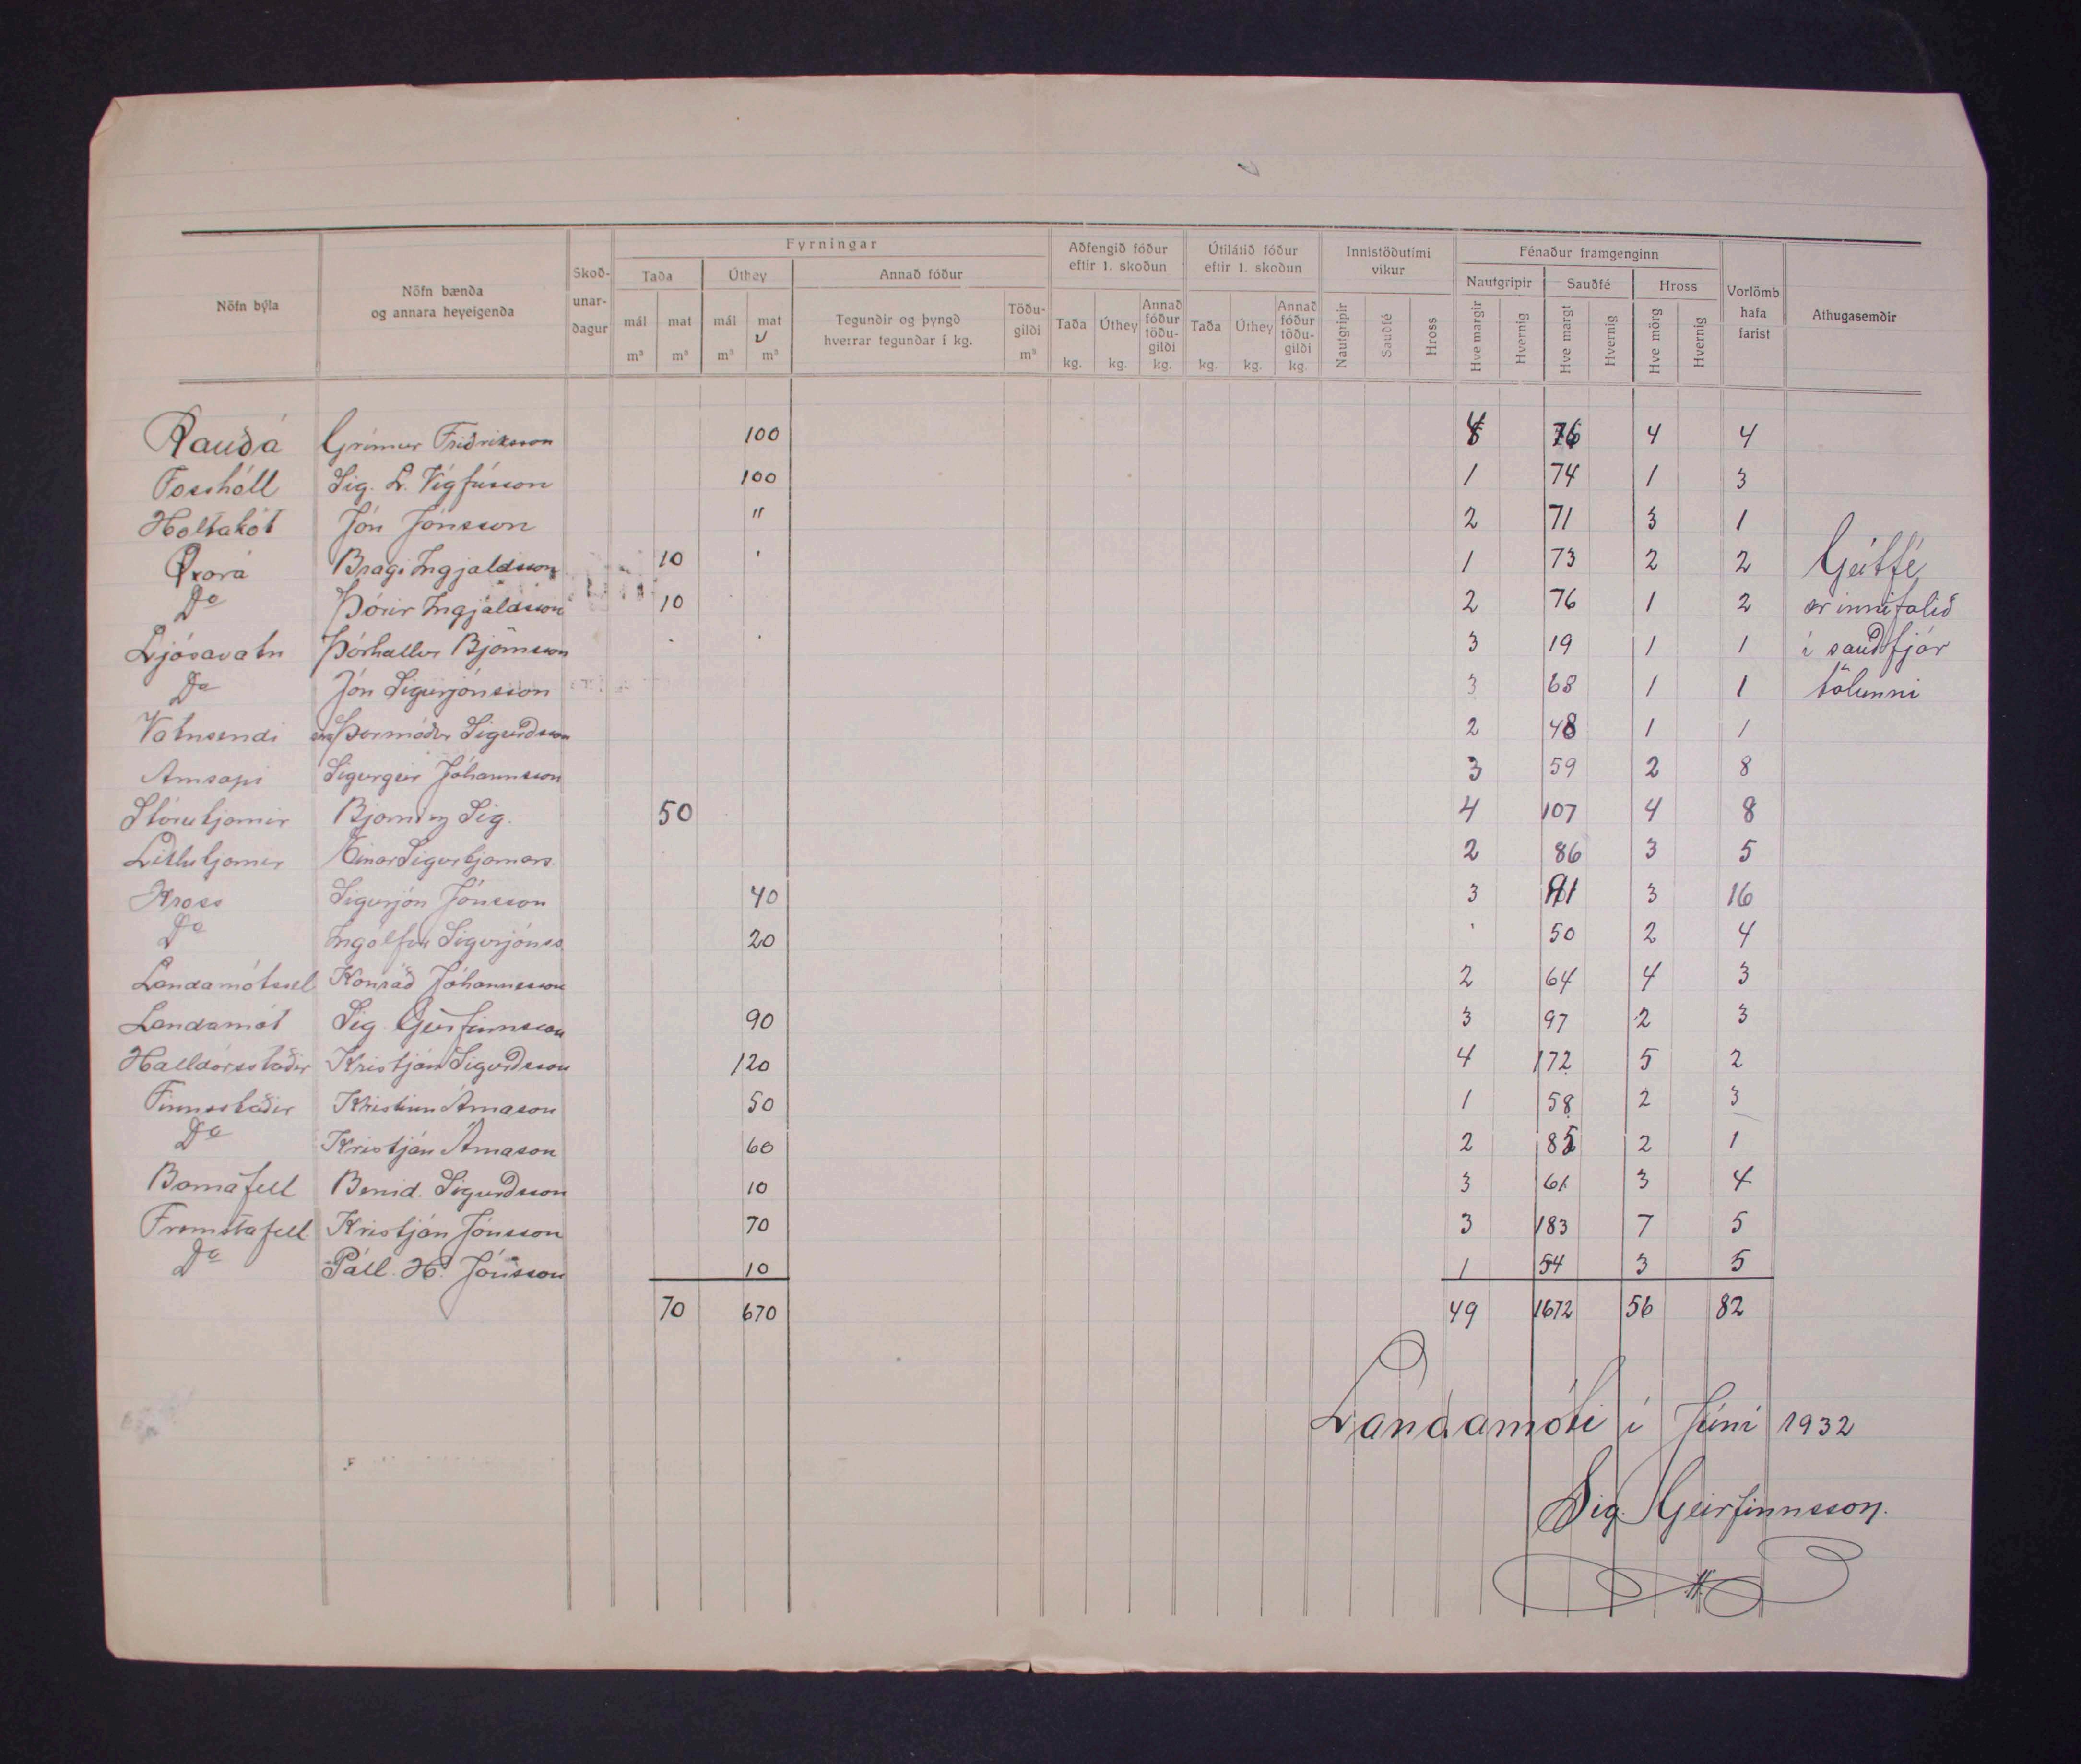 Fyrningar
Aðfengið fóður eftir 1. skoðun
Útilátið fóður eftir 1. skoðun
Innistöðutími vikur
Fénaður framgenginn
Nöfn býla
Nöfn bænda og annara heyeigenda
Skoð-unar-dagur
Taða
Úthey
Annað fóður
Nautgripir
Sauðfé
Hross
Vorlömb hafa farist
Athugasemdir
mál m³
mat m³
mál m³
mat m³
Tegundir og þyngd hverrar tegundar í kg.
Töðu-gildi m³
Taða kg.
Úthey kg.
Annað fóður töðu-gildi kg.
Taða kg.
Úthey kg.
Annað fóður töðu-gildi kg.
Nautgripir
Sauðfé
Hross
Hve margir
Hvernig
Hve margt
Hvernig
Hve mörg
Hvernig
Rauðá Grímur Friðriksson 100 76 4 4
Fosshóll Sig. L. Vigfússon 100 1 74 1 3
Holtakot Jón Jónsson " 2 71 3 1
Bragi Ingjaldsson 10 1 73 2 2 Geitfé
Do Þórir Ingjaldsson 10 2 76 1 2 er innifalið
Ljósavatn Þórhallur Björnsson 3 19 1 1 í sauðfjár
Do Jón Sigurjónsson 3 68 1 1 tölunni
Vatnsendi Þormóður Sigurdsson 2 48 1 1
Arnsapi Sigurgeir Jóhannsson 3 59 2 8
Stórutjarnir Sig. 50 4 107 4 8
Litlutjarnir Einar Sigurbjarnars. 2 86 3 5
Kross Sigurjón Jónsson 40 3 3 16
Do Ingólfur Sigurjónss. 20 50 2 4
Landamótssel Konráð Jóhannesson 2 64 4 3
Landamót Sig Geirfinnsson 90 3 97 2 3
Halldórsstaðir Kristján Sigurdsson 120 4 172 5 2
Finnsstaðir Kristinn Árnason 50 1 58 2 3
Do Kristján Árnason 60 2 85 2 1
Barnafell Benid. Sigurdsson 10 3 61 3 4
Fremstafell Kristján Jónsson 70 3 183 7 5
Do Páll H. Jónsson 10 1 54 3 5
70 670 49 1672 56 82
Landamóti í Júní 1932
Sig. Geirfinnsson.